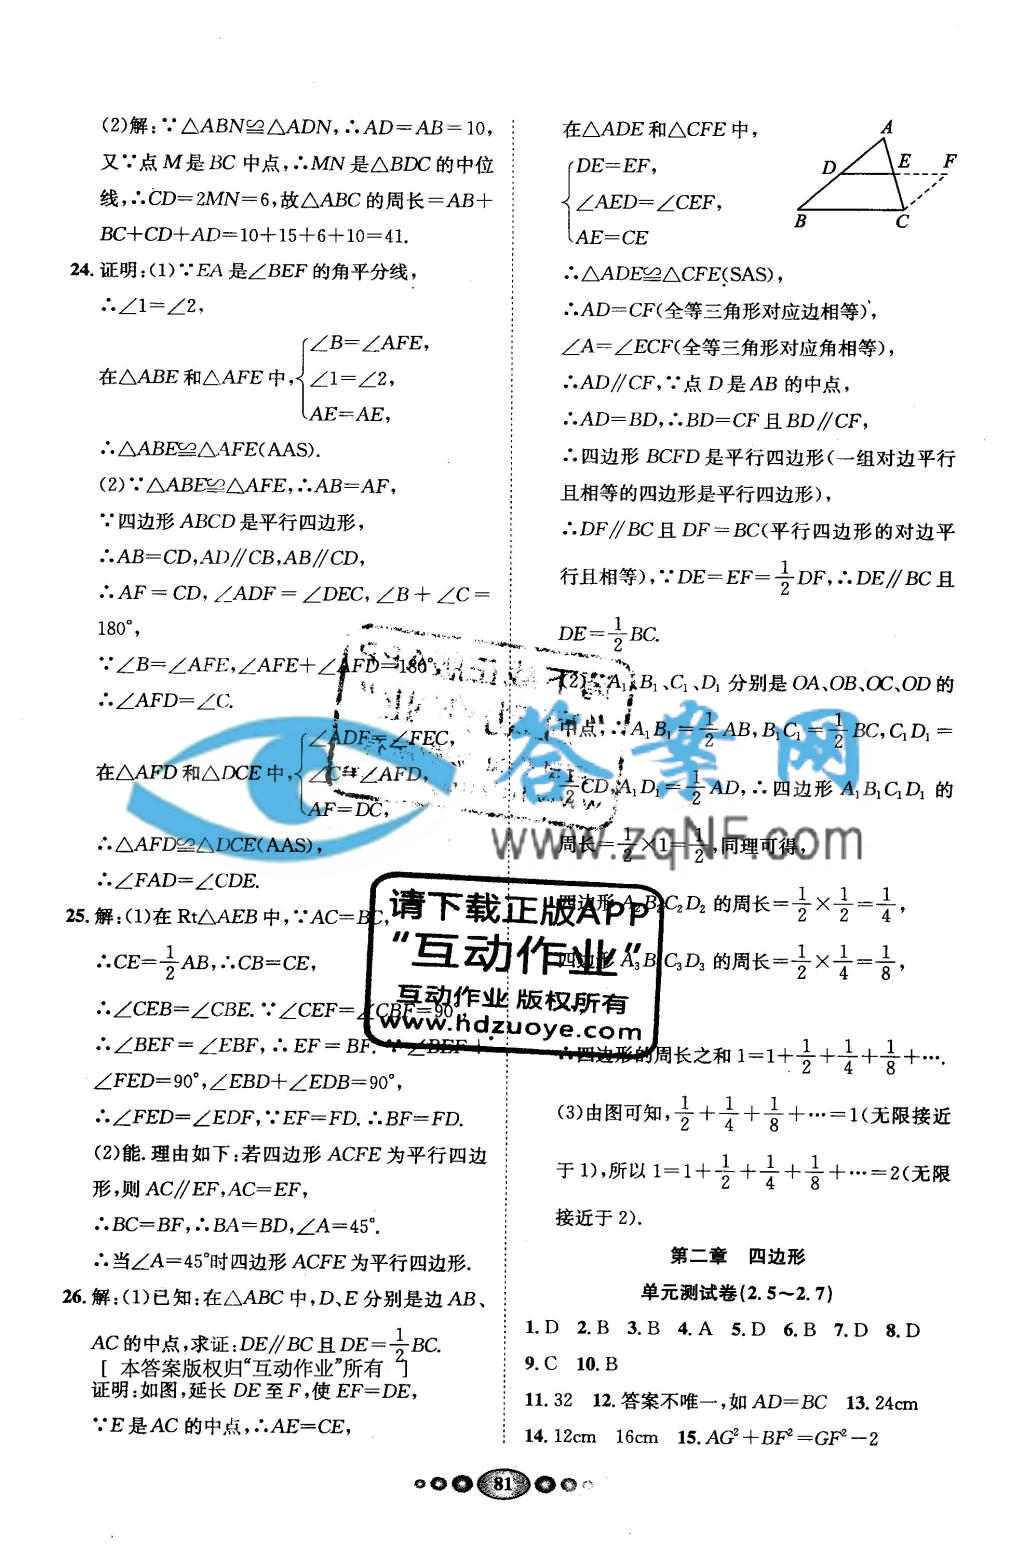 (2)解:∵△ABN≌△ADN,∴AD=AB=10,
又∵点M是BC中点,∴MN是△BDC的中位
线,∴CD=2MN=6,故△ABC的周长=AB+
BC+CD+AD=10+15+6+10=41.
24.证明:(1)∵EA是∠BEF的角平分线,
∴∠1=∠2,
在△ABE和△AFE中,{∠B=∠AFE,
∠1=∠2,
AE=AE,
∴△ABE≌△AFE(AAS).
(2)∵△ABE≌△AFE,∴AB=AF,
∵四边形ABCD是平行四边形,
∴AB=CD,AD∥CB,AB∥CD,
∴AF=CD,∠ADF=∠DEC,∠B+∠C=
180°,
∵∠B=∠AFE,∠AFE+∠AFD=180°,
∴∠AFD=∠C.
在△AFD和△DCE中,{∠ADF=∠FEC,
∠C=∠AFD,
AF=DC,
∴△AFD≌△DCE(AAS),
∴∠FAD=∠CDE.
25.解:(1)在Rt△AEB中,∵AC=BC,
∴CE=1/2AB,∴CB=CE,
∴∠CEB=∠CBE.∵∠CEF=∠CBF=90°,
∴∠BEF=∠EBF,∴EF=BF.∵∠BEF+
∠FED=90°,∠EBD+∠EDB=90°,
∴∠FED=∠EDF,∵EF=FD.∴BF=FD.
(2)能.理由如下:若四边形ACFE为平行四边
形,则AC∥EF,AC=EF,
∴BC=BF,∴BA=BD,∠A=45°.
∴当∠A=45°时四边形ACFE为平行四边形.
26.解:(1)已知:在△ABC中,D、E分别是边AB、
AC的中点,求证:DE∥BC且DE=1/2BC.
[ 本答案版权归“互动作业”所有 ]
证明:如图,延长DE至F,使EF=DE,
∵E是AC的中点,∴AE=CE,
在△ADE和△CFE中,
{DE=EF,
∠AED=∠CEF,
AE=CE
A
D E F
B C
∴△ADE≌△CFE(SAS),
∴AD=CF(全等三角形对应边相等),
∠A=∠ECF(全等三角形对应角相等),
∴AD∥CF,∵点D是AB的中点,
∴AD=BD,∴BD=CF且BD∥CF,
∴四边形BCFD是平行四边形(一组对边平行
且相等的四边形是平行四边形),
∴DF∥BC且DF=BC(平行四边形的对边平
行且相等),∵DE=EF=1/2DF,∴DE∥BC且
DE=1/2BC.
(2)∵A₁、B₁、C₁、D₁分别是OA、OB、OC、OD的
中点,∴A₁B₁=1/2AB,B₁C₁=1/2BC,C₁D₁=
1/2CD,A₁D₁=1/2AD,∴四边形A₁B₁C₁D₁的
周长=1/2×1=1/2,同理可得,
四边形A₂B₂C₂D₂的周长=1/2×1/2=1/4,
四边形A₃B₃C₃D₃的周长=1/2×1/4=1/8,
∴四边形的周长之和1=1+1/2+1/4+1/8+….
(3)由图可知,1/2+1/4+1/8+…=1(无限接近
于1),所以1=1+1/2+1/4+1/8+…=2(无限
接近于2).
第二章 四边形
单元测试卷(2.5~2.7)
1.D 2.B 3.B 4.A 5.D 6.B 7.D 8.D
9.C 10.B
11.32 12.答案不唯一,如AD=BC 13.24cm
14.12cm 16cm 15.AG²+BF²=GF²-2
81
答案网
www.zqNF.com
请下载正版APP
“互动作业”
互动作业 版权所有
www.hdzuoye.com